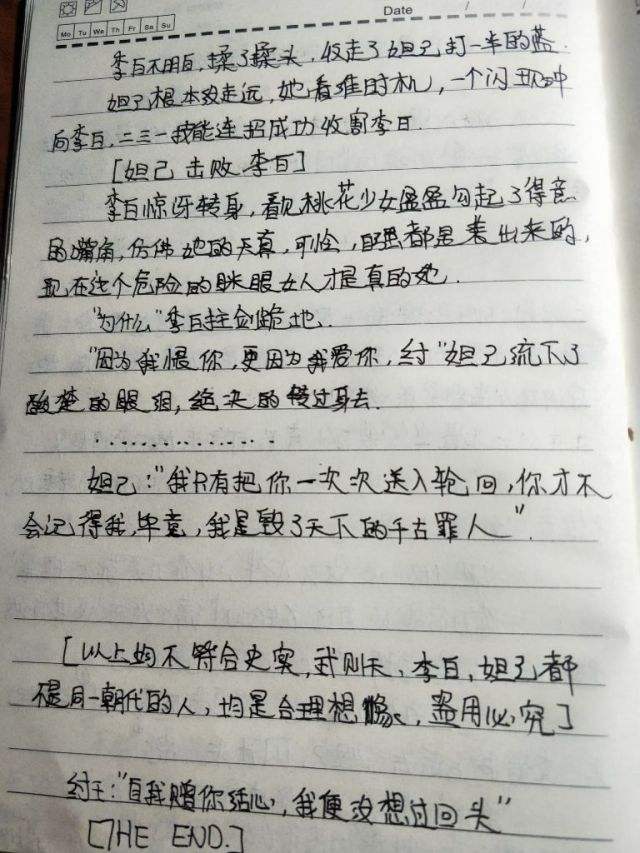 Date / /
Mo Tu We Th Fr Sa Su
李白不明白,揉了揉头,收走了妲己打一半的蓝.
妲己根本没走远,她看准时机,一个闪现冲
向李白,二三一技能连招成功收割李白.
[妲己 击败 李白]
李白惊讶转身,看见桃花少女盈盈勾起了得意
的嘴角,仿佛她的天真,可怜,旺都是装出来的,
现在这个危险的眯眼女人才是真的她.
"为什么"李白拄剑跪地.
"因为我恨你,更因为我爱你,纣"妲己流下了
酸楚的眼泪,绝决的转过身去.
..............
妲己:"我只有把你一次次送入轮回,你才不
会记得我,毕竟,我是毁了天下的千古罪人".
[以上均不符合史实,武则天、李白,妲己都
不是同一朝代的人,均是合理想像,盗用必究]
纣王:"自我赠你活心,我便没想过回头"
[THE END.]